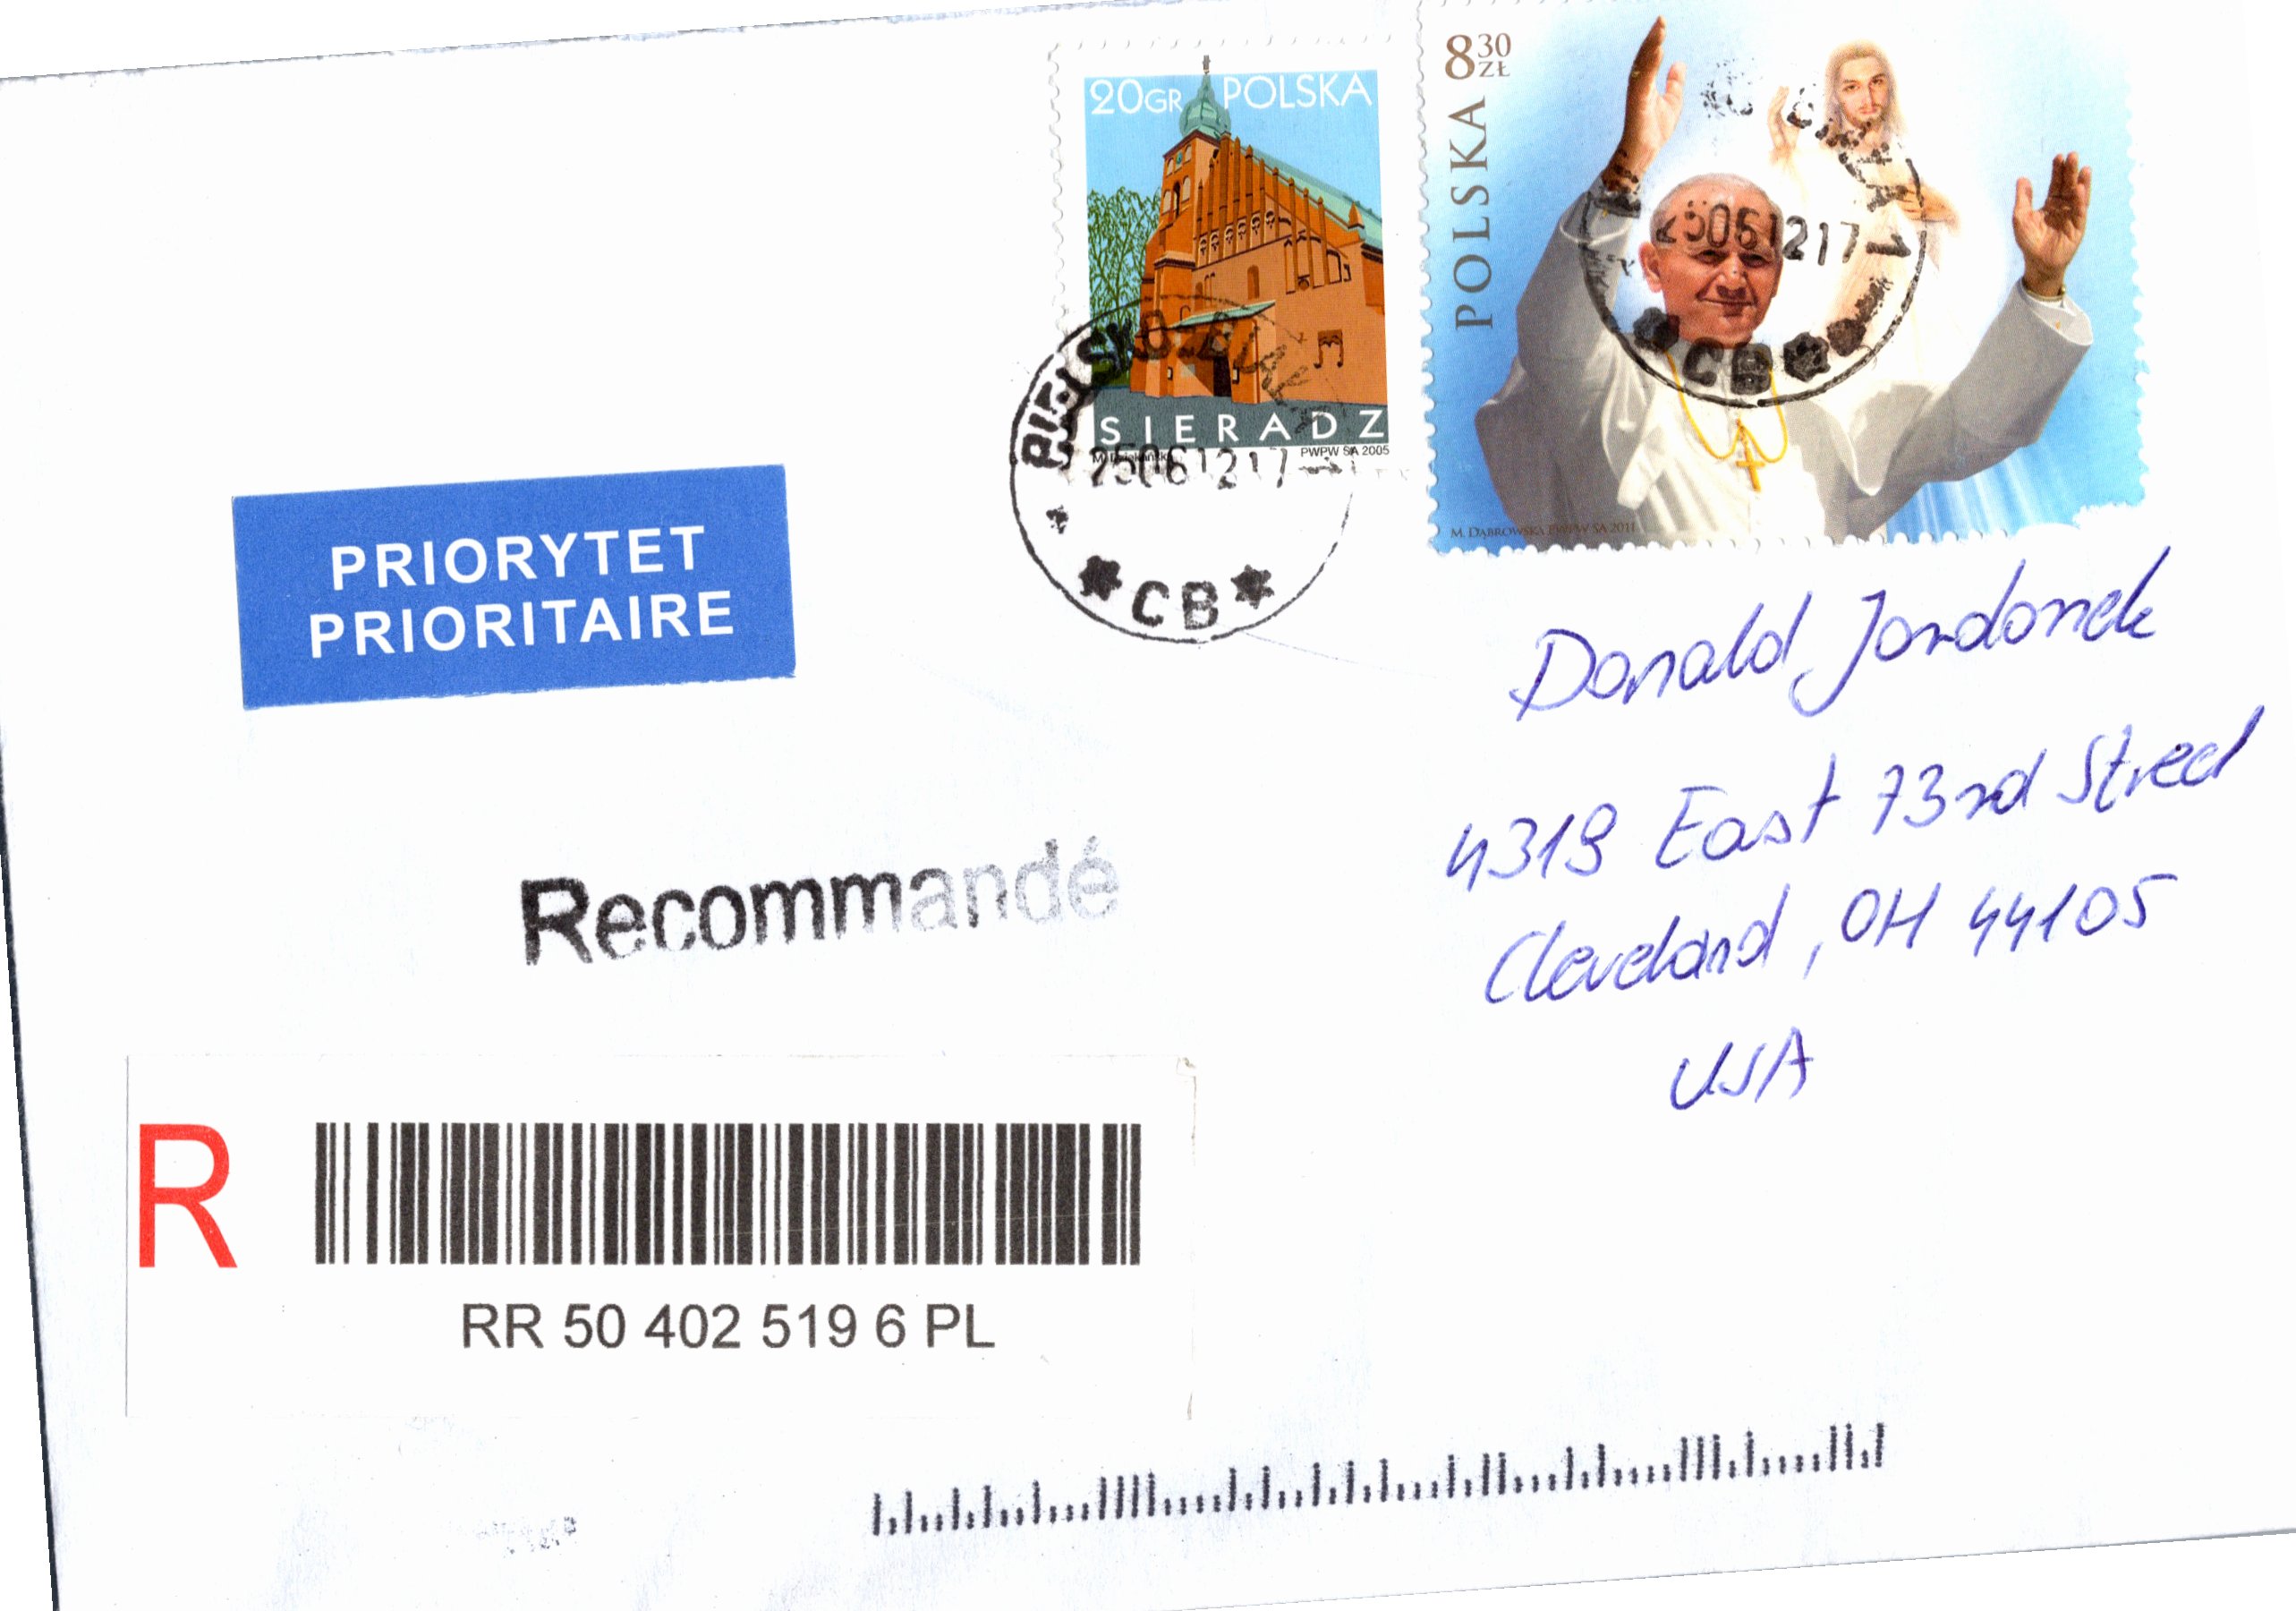 20GR POLSKA
SIERADZ
PWPW SA 2005
8 30 ZŁ
POLSKA
M. DĄBROWSKA PWPW SA 2011
25061217
CB
25061217
CB
PRIORYTET
PRIORITAIRE
Donald Jordonek
4319 East 73rd Street
Cleveland, OH 44105
USA
Recommandé
R
RR 50 402 519 6 PL